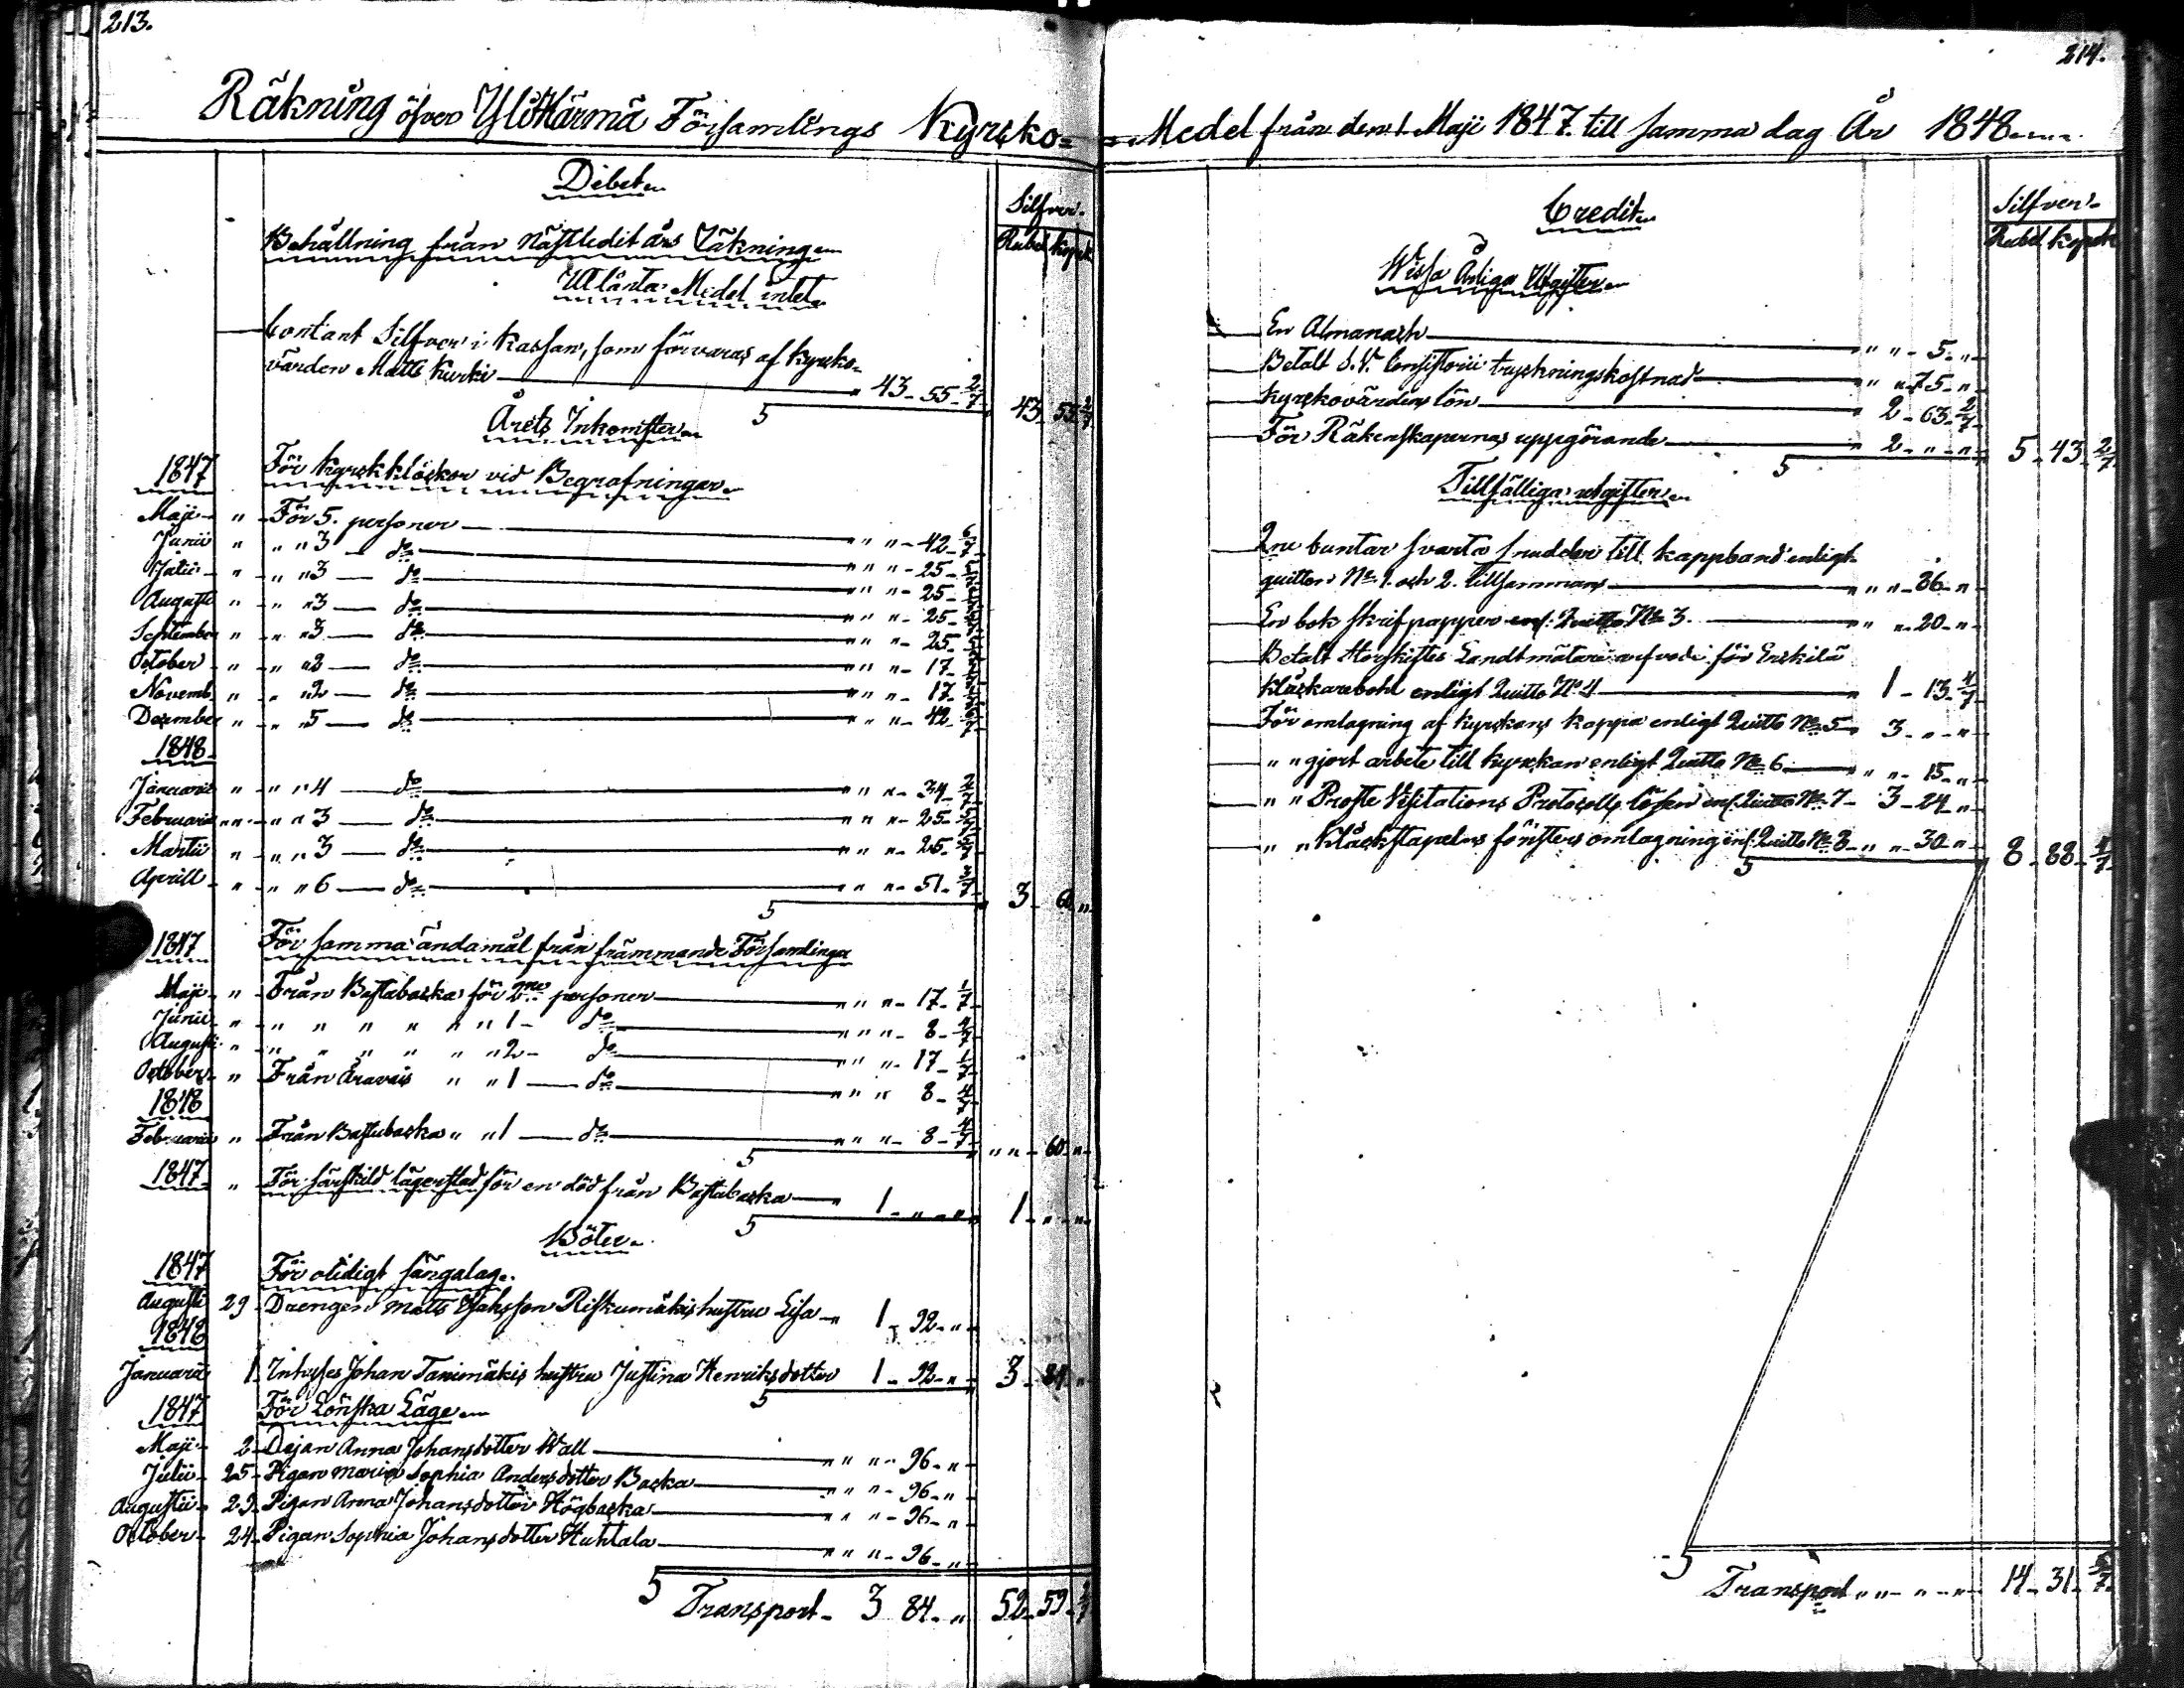 213.
Räkning öfver Ylihärmä Församlings Kyrko=
Debet
Silfver.
Rubel Kopek
Behållning från nästledit års Räkning
Utlånta Medel intet
Contant Silfver i Kassan, som förvaras af Kyrko-
värden Matts Kurki " 43-55-2/7
43 55 2/7
Årets Inkomster
1847 För Kyrckklåckor vid Begrafningar
Maji " För 5. personer " " " - 42 - 6/7
Junii " " " 3 - do " " " - 25 - 5/7
Julii " " " 3 - do " " " - 25 - 5/7
Augusti " " " 3 - do " " " - 25 - 5/7
September " " " 3 - do " " " - 25 - 5/7
October " " " 2 - do " " " - 17 - 1/7
Novemb " " " 2 - do " " " - 17 - 1/7
December " " " 5 - do " " " - 42 - 6/7
1848
Januarii " " " 4 - do " " " - 34 - 2/7
Februarii " " " 3 - do " " " - 25 - 5/7
Martii " " " 3 - do " " " - 25 - 5/7
Aprill " " " 6 - do " " " - 51 - 3/7
3 - 60 "
1847 För samma ändamål från främmande Församlingar
Maji " Från Bastubacka för 2ne personer " " " - 17 - 1/7
Junii " " " " " " " 1 - do " " " - 8 - 4/7
Augusti " " " " " " " 2 - do " " " - 17 - 1/7
October " Från Oravais " " 1 - do " " " 8 - 4/7
1848
Februarii " Från Bastubacka " " 1 - do " " " - 8 - 4/7
" " - 60 - "
1847 " För särskild lägerstad för en död från Bastubacka " 1 - " - "
1 - " - "
Böter
1847 För otidigt sängalag.
Augusti 29 Drengen Matts Isaksson Riskumäkis hustru Lisa " 1 - 92 - "
1848
Januarii 1 Inhyses Johan Tanimäkis hustru Justina Henriksdotter 1 - 92 - "
3 - 84 "
1847 För Lönska Läge
Maji 2 Dejan Anna Johansdotter Wall " " " - 96 - "
Julii 25 Pigan Maria Sophia Andersdotter Backa " " " - 96 - "
Augustii 29 Pigan Anna Johansdotter Högbacka " " " - 96 - "
October 24 Pigan Sophia Johansdotter Huhtala " " " - 96 - "
Transport - 3 84 - " 52 - 59 - 2/7
214.
= Medel från den 1 Maji 1847. till samma dag År 1848
Credit
Silfver
Rubel Kopek
Wissa Årliga Utgifter
En Almanach " " - 5 - "
Betalt S. V. Consistorii tryckningskostnad " " - 75 - "
Kyrckovärdens lön " 2 - 63 - 2/7
För Räkenskapernas uppgörande " 2 - " - "
5 - 43 - 2/7
Tillfälliga utgifter
2ne buntar svarta snudder till kappband enligt
quitton No 1. och 2. tillsammans " " - 86 - "
En bok skrifpapper enl. Quitto No 3. " " - 20 - "
Betalt Storskiftes Landtmätare arfvode för Erickilä
Klåckarebohl enligt Quitto No 4 " 1 - 13 - 4/7
För omlagning af Kyrckans kappa enligt Quitto No 5 " 3 - " - "
" " gjort arbete till Kyrckan enligt Quitto No 6 " " - 15 - "
" " Proste Visitations Protocolls lösen enl. Quitto No 7 - 3 - 24 - "
" " Klåckstapelns fönsters omlagning enl. Quitto No 8 - " " - 30 - "
8 - 88 - 4/7
Transport " " - " - " - 14 - 31 - 6/7